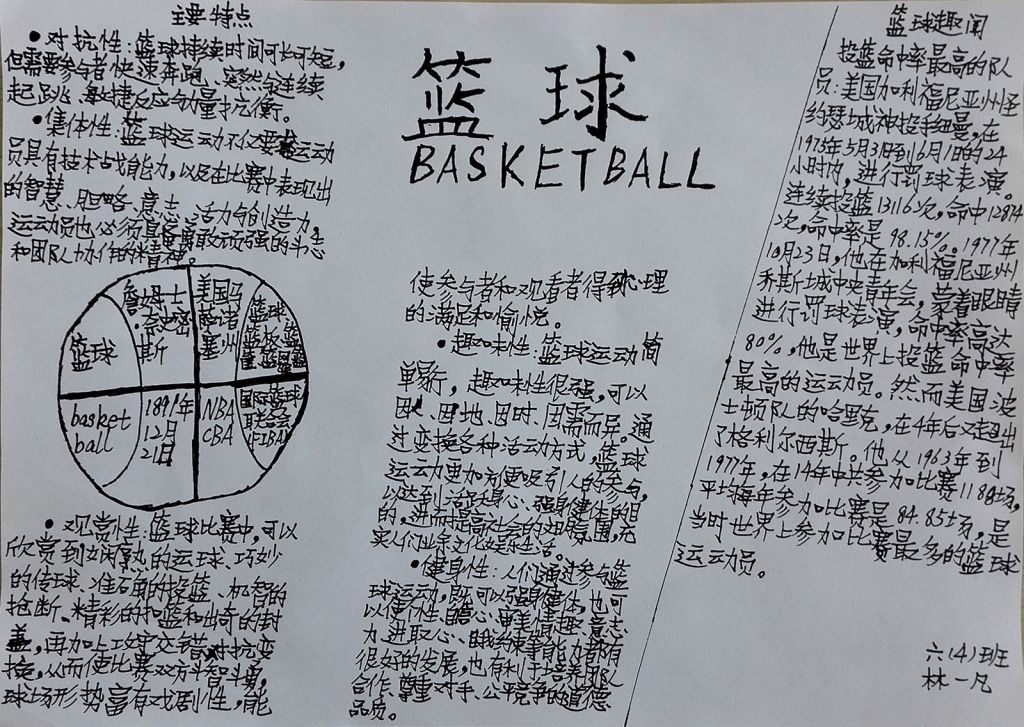 主要特点
•对抗性：篮球持续时间可长可短，
但需要参与者快速奔跑、突然与连续
起跳、敏捷反应与力量抗衡。
•集体性：篮球运动不仅要求运动
员具有技术战能力，以及在比赛中表现出
的智慧、胆略、意志、活力与创造力，
运动员也必须具备勇敢顽强的斗志
和团队协作的精神。
詹姆士
·奈史密
斯
美国马
萨诸
塞州
篮球
篮板篮
筐
篮球
basket
ball
1891年
12月
21日
NBA
CBA
国际篮球
联合会
FIBA
•观赏性：篮球比赛中，可以
欣赏到娴熟的运球、巧妙
的传球、准确的投篮、机智的
抢断、精彩的扣篮和出奇的封
盖，再加上攻守交错对抗变
换，从而使比赛双方斗智斗勇，
球场形势富有戏剧性，能
篮球
BASKETBALL
使参与者和观看者得到心理
的满足和愉悦。
•趣味性：篮球运动简
单易行，趣味性很强，可以
因人、因地、因时、因需而异。通
过变换各种活动方式，篮球
运动更加方便吸引人的参与，
以达到活跃身心、强身健体的目
的，进而提高社会的氛围，充
实人们业余文化娱乐生活。
•健身性：人们通过参与篮
球运动，既可以强身健体，也可
以使个性、自信心、审美情趣、意志
力、进取心、自我约束等能力都有
很好的发展，也有利于培养团队
合作、尊重对手、公平竞争的道德
品质。
篮球趣闻
投篮命中率最高的队
员：美国加利福尼亚州圣
约瑟城神投手纽曼，在
1975年5月31日到6月1日的24
小时内，进行罚球表演。
连续投篮13116次，命中12874
次，命中率是98.15%。1977年
10月23日，他在加利福尼亚州
乔斯城中央青年会，蒙着眼睛
进行罚球表演，命中率高达
80%，他是世界上投篮命中率
最高的运动员。然而美国波
士顿队的哈里克，在4年后又超出
了格利尔西斯。他从1963年到
1977年，在14年中共参加比赛1188场，
平均每年参加比赛是84.85场，是
当时世界上参加比赛最多的篮球
运动员。
六(4)班
林一凡